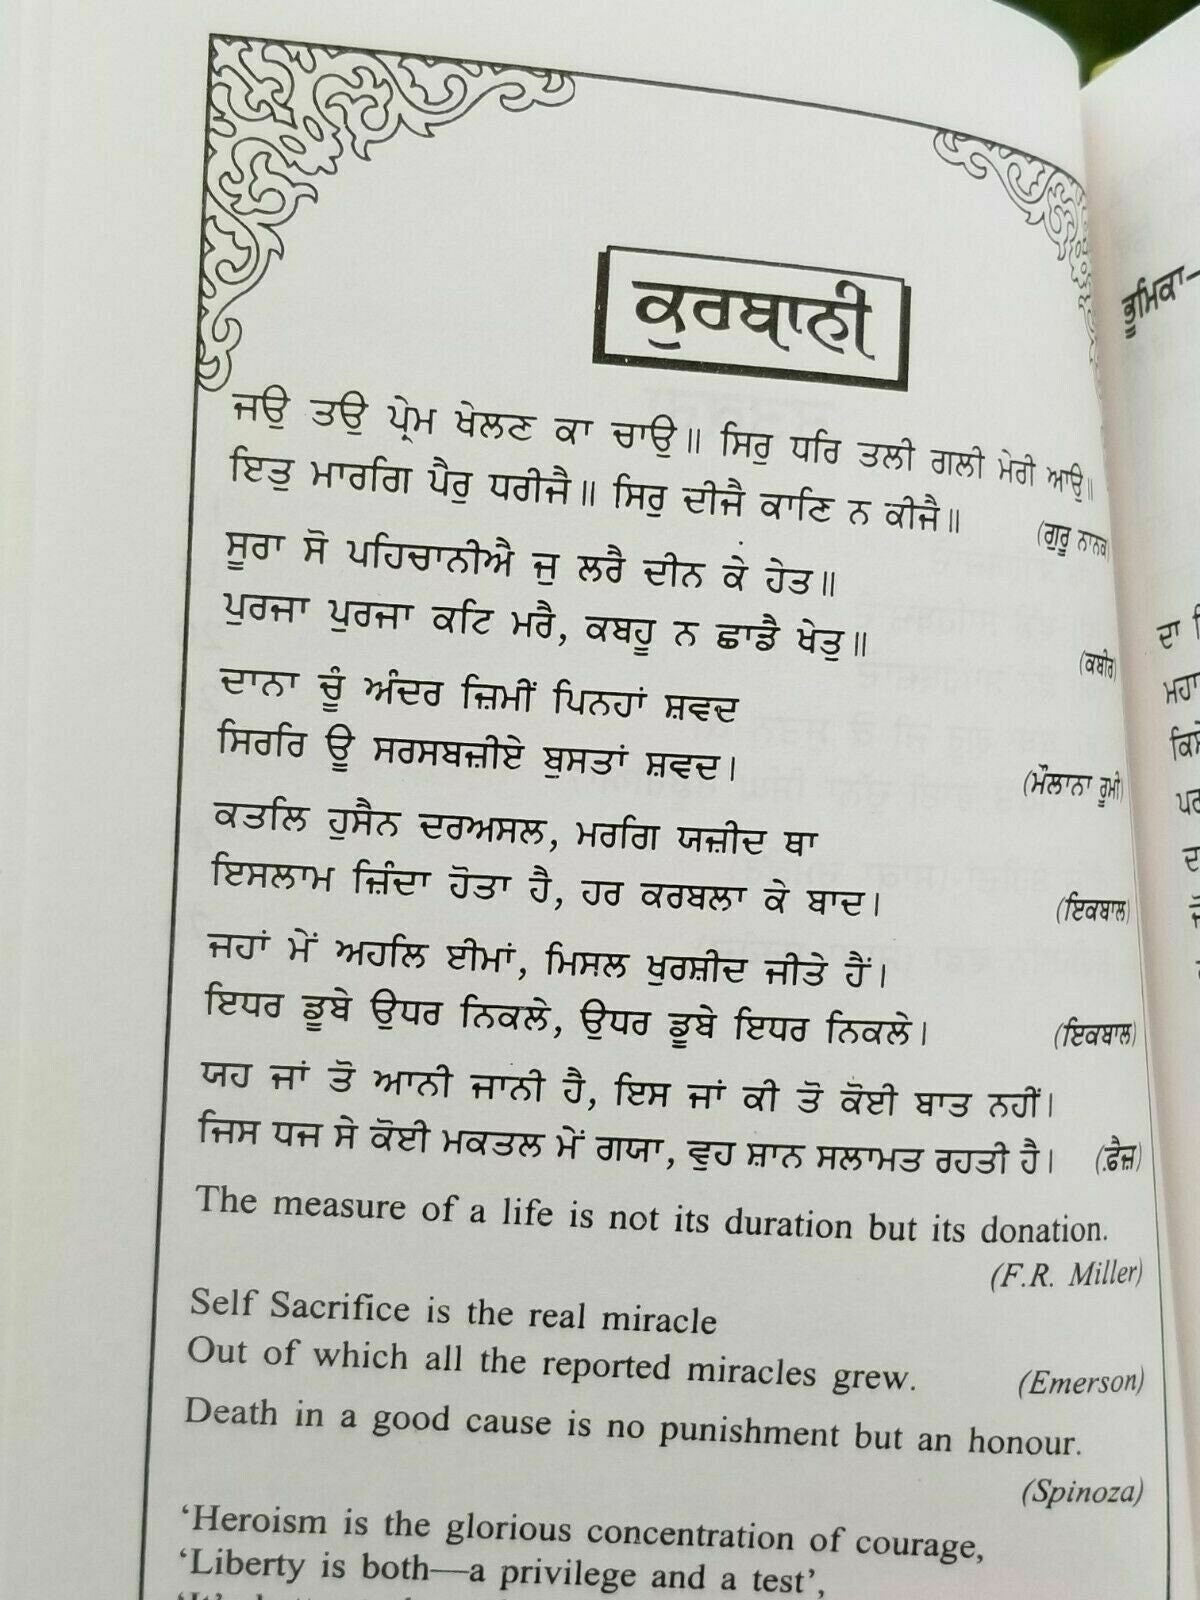 ਕੁਰਬਾਨੀ
ਜਉ ਤਉ ਪ੍ਰੇਮ ਖੇਲਣ ਕਾ ਚਾਉ॥ ਸਿਰੁ ਧਰਿ ਤਲੀ ਗਲੀ ਮੇਰੀ ਆਉ॥
ਇਤੁ ਮਾਰਗਿ ਪੈਰੁ ਧਰੀਜੈ॥ ਸਿਰੁ ਦੀਜੈ ਕਾਣਿ ਨ ਕੀਜੈ॥
(ਗੁਰੂ ਨਾਨਕ)
ਸੂਰਾ ਸੋ ਪਹਿਚਾਨੀਐ ਜੁ ਲਰੈ ਦੀਨ ਕੇ ਹੇਤ॥
ਪੁਰਜਾ ਪੁਰਜਾ ਕਟਿ ਮਰੈ, ਕਬਹੂ ਨ ਛਾਡੈ ਖੇਤੁ॥
(ਕਬੀਰ)
ਦਾਨਾ ਚੂੰ ਅੰਦਰ ਜ਼ਿਮੀਂ ਪਿਨਹਾਂ ਸ਼ਵਦ
ਸਿਰਰਿ ਊ ਸਰਸਬਜ਼ੀਏ ਬੁਸਤਾਂ ਸ਼ਵਦ।
(ਮੌਲਾਨਾ ਰੂਮੀ)
ਕਤਲਿ ਹੁਸੈਨ ਦਰਅਸਲ, ਮਰਗਿ ਯਜ਼ੀਦ ਥਾ
ਇਸਲਾਮ ਜ਼ਿੰਦਾ ਹੋਤਾ ਹੈ, ਹਰ ਕਰਬਲਾ ਕੇ ਬਾਦ।
(ਇਕਬਾਲ)
ਜਹਾਂ ਮੇਂ ਅਹਲਿ ਈਮਾਂ, ਮਿਸਲ ਖੁਰਸ਼ੀਦ ਜੀਤੇ ਹੈਂ।
ਇਧਰ ਡੂਬੇ ਉਧਰ ਨਿਕਲੇ, ਉਧਰ ਡੂਬੇ ਇਧਰ ਨਿਕਲੇ।
(ਇਕਬਾਲ)
ਯਹ ਜਾਂ ਤੋ ਆਨੀ ਜਾਨੀ ਹੈ, ਇਸ ਜਾਂ ਕੀ ਤੋ ਕੋਈ ਬਾਤ ਨਹੀਂ।
ਜਿਸ ਧਜ ਸੇ ਕੋਈ ਮਕਤਲ ਮੇਂ ਗਯਾ, ਵੁਹ ਸ਼ਾਨ ਸਲਾਮਤ ਰਹਤੀ ਹੈ। (ਫ਼ੈਜ਼)
The measure of a life is not its duration but its donation.
(F.R. Miller)
Self Sacrifice is the real miracle
Out of which all the reported miracles grew. (Emerson)
Death in a good cause is no punishment but an honour.
(Spinoza)
‘Heroism is the glorious concentration of courage,
‘Liberty is both—a privilege and a test’,
ਭੂਮਿਕਾ–
ਦਾ
ਮਹਾ